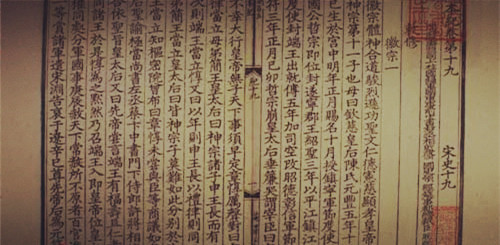 本紀卷第十九 宋史十九
敕修
徽宗一
徽宗體神合道駿烈遜功聖文仁德憲慈顯孝皇帝
神宗第十一子也母曰欽慈皇后陳氏元豐五年十
巳生於宮中明年正月賜名十月授鎮寧軍節度使
國公哲宗即位封遂寧郡王紹聖三年以平江鎮江
度使封端王出就傅五年加司空改昭德彰信軍節
符三年正月己卯哲宗崩皇太后垂簾哭謂宰臣曰
紀十九
不幸大行皇帝無子天下事須早定章惇厲聲對曰
當立母弟簡王皇太后曰神宗諸子申王長而有
次則端王當立惇又曰以年則申王長以禮律則同
弟簡王當立皇太后曰皆神宗子莫難如此分別於
王當立知樞密院曾布曰章惇未嘗與臣等商議如
后聖諭極當尚書左丞蔡卞中書門下侍郎許將相
依聖旨皇太后又曰先帝嘗言端王有福壽且仁
諸王於是惇為之默然乃召端王入即皇帝位皇
權同處分軍國事庚辰赦天下常赦所不原者百官
等賞諸軍遣宋淵告哀于遼辛巳尊先帝后為元